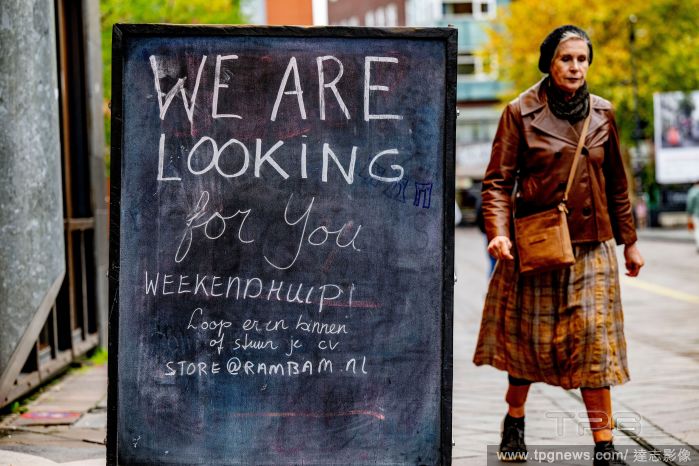 WE ARE
LOOKING
for You
WEEKENDHULP!
Loop er in binnen
of stuur je cv
STORE@RAMBAM.NL
TPG
www.tpgnews.com/ 達志影像